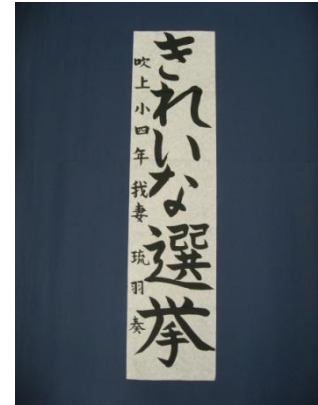 きれいな選挙
吹上小四年 我妻 琉羽奏